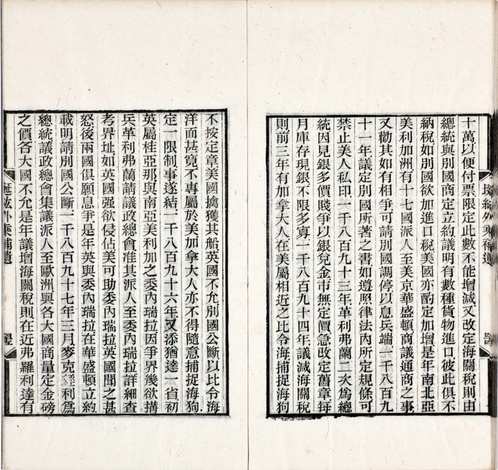 十萬以便付票限定此數不能增減又改定海關稅則由
總統與別國商定立約議明有數種貨物進口彼此俱不
納稅如別國欲加進口稅美國亦酌定加增是年南北亞
美利加洲有十七國派人至美京華盛頓商議通商之事
又勸其如有相爭可請別國調停以息兵端一千八百九
十一年議定別國所著之書如遵照律法內所定規條可
禁止美人私印一千八百九十三年革利弗蘭二次爲總
統因見銀多價賤爭以銀兌金市無定價急改定舊章每
月庫存現銀不限定買若干一千八百九十四議減海關稅
則前三年有加拿大人在美屬相近之比令海捕捉海狗
不按定章美國擒獲其船英國不允別國公斷以比令海
洋而甚寬不專屬於美加拿大人亦不得隨意捕捉海狗
定一限制事遂結一千八百九十六年又添猶達一省初
英屬桂亞那與南亞美利加之委內瑞拉因爭界幾欲搆
兵革利弗蘭請議政總會准其派人至委內瑞拉詳細查
考界址如英國强欲侵佔美可助委內瑞拉英國聞之甚
怒後兩國俱願息爭是年英與委內瑞拉在華盛頓立約
載明請別國公斷一千八百九十七年三月麥克���利爲
總統議政總會集議派人至歐洲與各大國商量定金磅
之價各大國不允是年議增海關稅則在近弗羅利達有